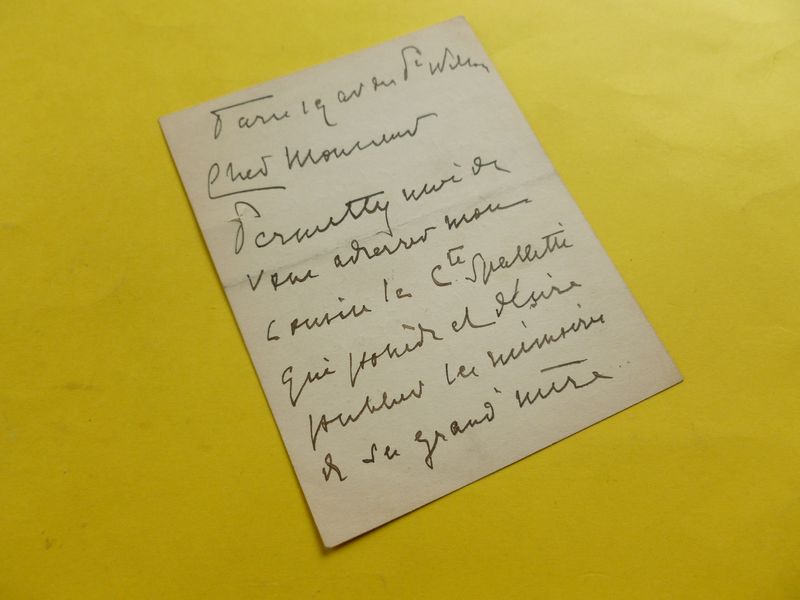 Paris 19 av du Pt Wilson
Cher Monsieur
Permettez moi de
vous adresser mon
cousin le Cte Spalletti
qui possède et désire
publier les mémoires
de sa grand'mère